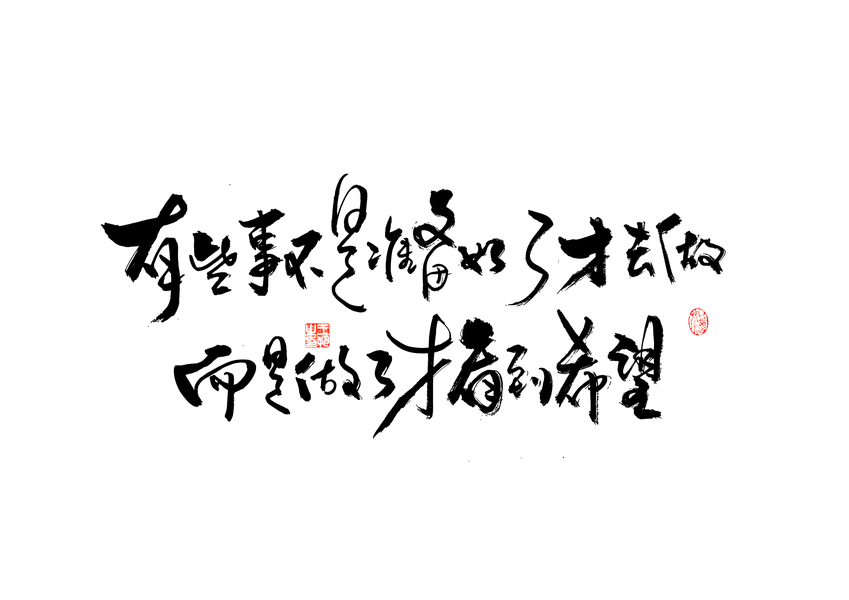 有些事不是准备好了才去做
而是做了才看到希望